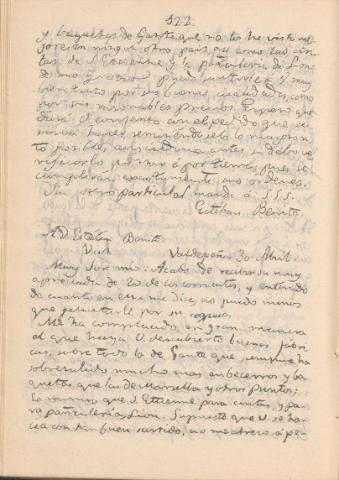 122.
y baquetas de Gante, que no los he visto me-
jores en ningun otro pais, asi como las cin-
tas de S. Etienne y la pañoleria de Lion.
de uno y otro puedo surtirle á V. muy
bien tanto por sus buenas cualidades, como
por sus razonables precios. Espero que
dará el consento con el pedido que se
sirva hacer, remitiendoselo lo mas pron-
to posible, advirtiendome antes, si debo ve-
rificarlo por mar ó por tierra, pues se
cumpliran exactamente sus ordenes.
Sin otro particular mande á S. S. S.
Esteban Benito.
A D. Esteban Benito.
Valdepeñas 30 Abril
Muy Sor mio: Acabo de recibir su muy
apreciada de 20 de los corrientes, y enterado
de cuanto en ella me dice, no puedo menos
que felicitarle por su regreso.
Me ha complacido, en gran manera
el que haya V. descubierto buenas fabri-
cas, sobre todo la de Gante que siempre ha
sobresalido mucho mas en becerros y ba-
quetas que las de Marsella y otros puntos;
lo mismo que S. Etienne para cintas, y pa-
ra pañuleria, Lion. Supuesto que V. se ha-
ya con tan buen surtido, no me atrevo á pe-